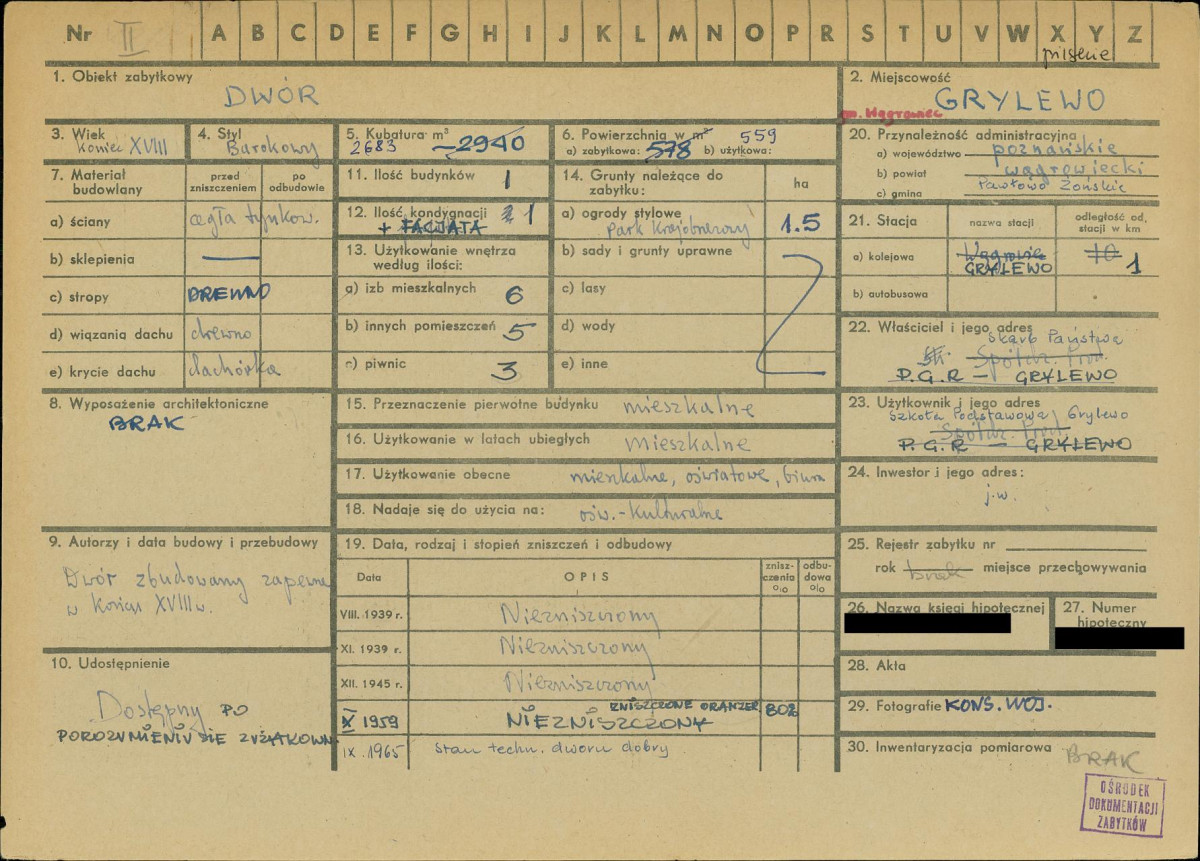 Nr II A B C D E F G H I J K L M N O P R S T U V W X Y Z
pilskie
1. Obiekt zabytkowy
DWÓR
2. Miejscowość
GRYLEWO
gm. Wągrowiec
3. Wiek
Koniec XVIII
4. Styl
Barokowy
5. Kubatura m³
2683 ~2940
6. Powierzchnia w m² 559
a) zabytkowa: 578 b) użytkowa:
7. Materiał budowlany
przed zniszczeniem
po odbudowie
a) ściany cegła tynkow.
b) sklepienia —
c) stropy DREWNO
d) wiązania dachu drewno
e) krycie dachu dachówka
11. Ilość budynków 1
12. Ilość kondygnacji 1
+ FACJATA
13. Użytkowanie wnętrza według ilości:
a) izb mieszkalnych 6
b) innych pomieszczeń 5
c) piwnic 3
14. Grunty należące do zabytku:
ha
a) ogrody stylowe
Park Krajobrazowy 1.5
b) sady i grunty uprawne
c) lasy
d) wody
e) inne
20. Przynależność administracyjna
a) województwo poznańskie
b) powiat wągrowiecki
c) gmina Pawłowo Żońskie
21. Stacja
nazwa stacji
odległość od stacji w km
a) kolejowa Wągrowiec 10
GRYLEWO 1
b) autobusowa
22. Właściciel i jego adres
Skarb Państwa
Spółdz. Prod.
P.G.R — GRYLEWO
23. Użytkownik i jego adres
Szkoła Podstawowa, Grylewo
Spółdz. Prod.
P.G.R — GRYLEWO
24. Inwestor i jego adres:
j.w.
8. Wyposażenie architektoniczne
BRAK
15. Przeznaczenie pierwotne budynku mieszkalne
16. Użytkowanie w latach ubiegłych mieszkalne
17. Użytkowanie obecne mieszkalne, oświatowe, biura
18. Nadaje się do użycia na: ośw.-kulturalne
9. Autorzy i data budowy i przebudowy
Dwór zbudowany zapewne
w końcu XVIII w.
10. Udostępnienie
Dostępny PO
POROZUMIENIU SIĘ Z UŻYTKOWN
19. Data, rodzaj i stopień zniszczeń i odbudowy
Data
OPIS
zniszczenia %
odbudowa %
VIII. 1939 r. Niezniszczony
XI. 1939 r. Niezniszczony
XII. 1945 r. Niezniszczony
ZNISZCZONE ORANŻER 80%
X 1959 NIEZNISZCZONY
IX. 1965 stan techn. dworu dobry
25. Rejestr zabytku nr
rok brak miejsce przechowywania
26. Nazwa księgi hipotecznej
27. Numer hipoteczny
28. Akta
29. Fotografie KONS. WOJ.
30. Inwentaryzacja pomiarowa BRAK
OŚRODEK
DOKUMENTACJI
ZABYTKÓW